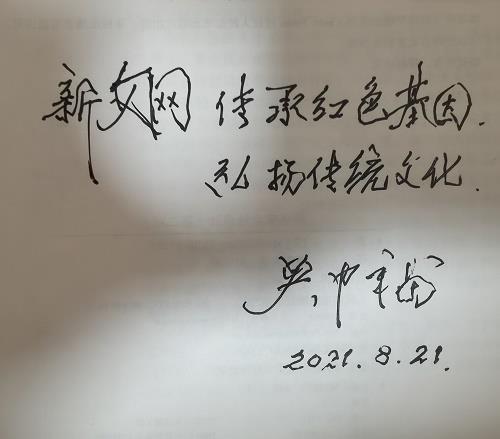 新文网 传承红色基因.
弘扬传统文化.
2021.8.21.